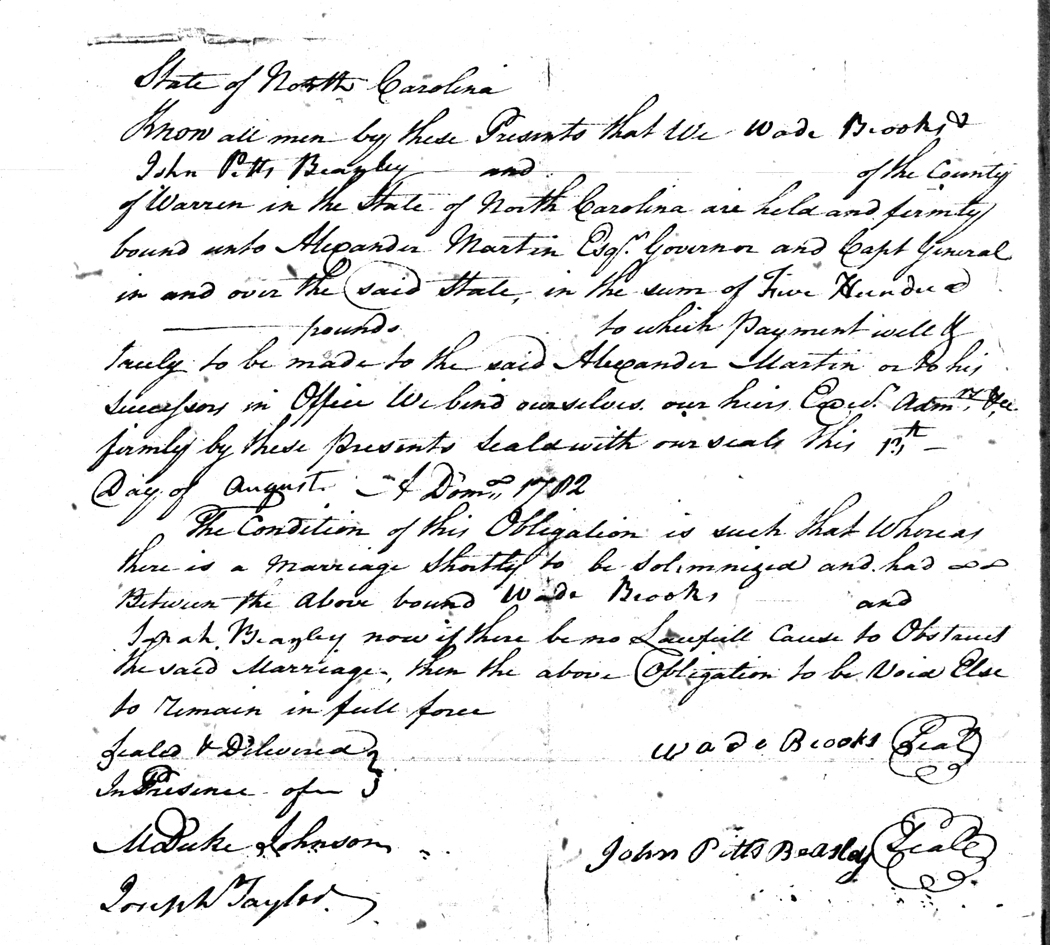 State of North Carolina
Know all men by these Presents that We Wade Brooks &
John Pitts Beasley and of the County
of Warren in the State of North Carolina are held and firmly
bound unto Alexander Martin Esqr. Governor and Capt General
in and over the said State, in the sum of Five Hundred
pounds to which Payment well &
truly to be made to the said Alexander Martin or to his
Successors in Office We bind ourselves our heirs Execrs. Admrs. &c
firmly by these presents Seald with our seals this 13th
Day of August A Domo. 1782
The Condition of this Obligation is such that Whereas
there is a Marriage Shortly to be Solemnized and had
Between the above bound Wade Brooks and
Beasley now if there be no Lawfull Cause to Obstruct
the said Marriage, then the above Obligation to be Void Else
to remain in full force
Sealed & Delivered
In Presence of
Wade Brooks Seal
M Duke Johnson
John Pitts Beasley Seal
Joseph Taylor